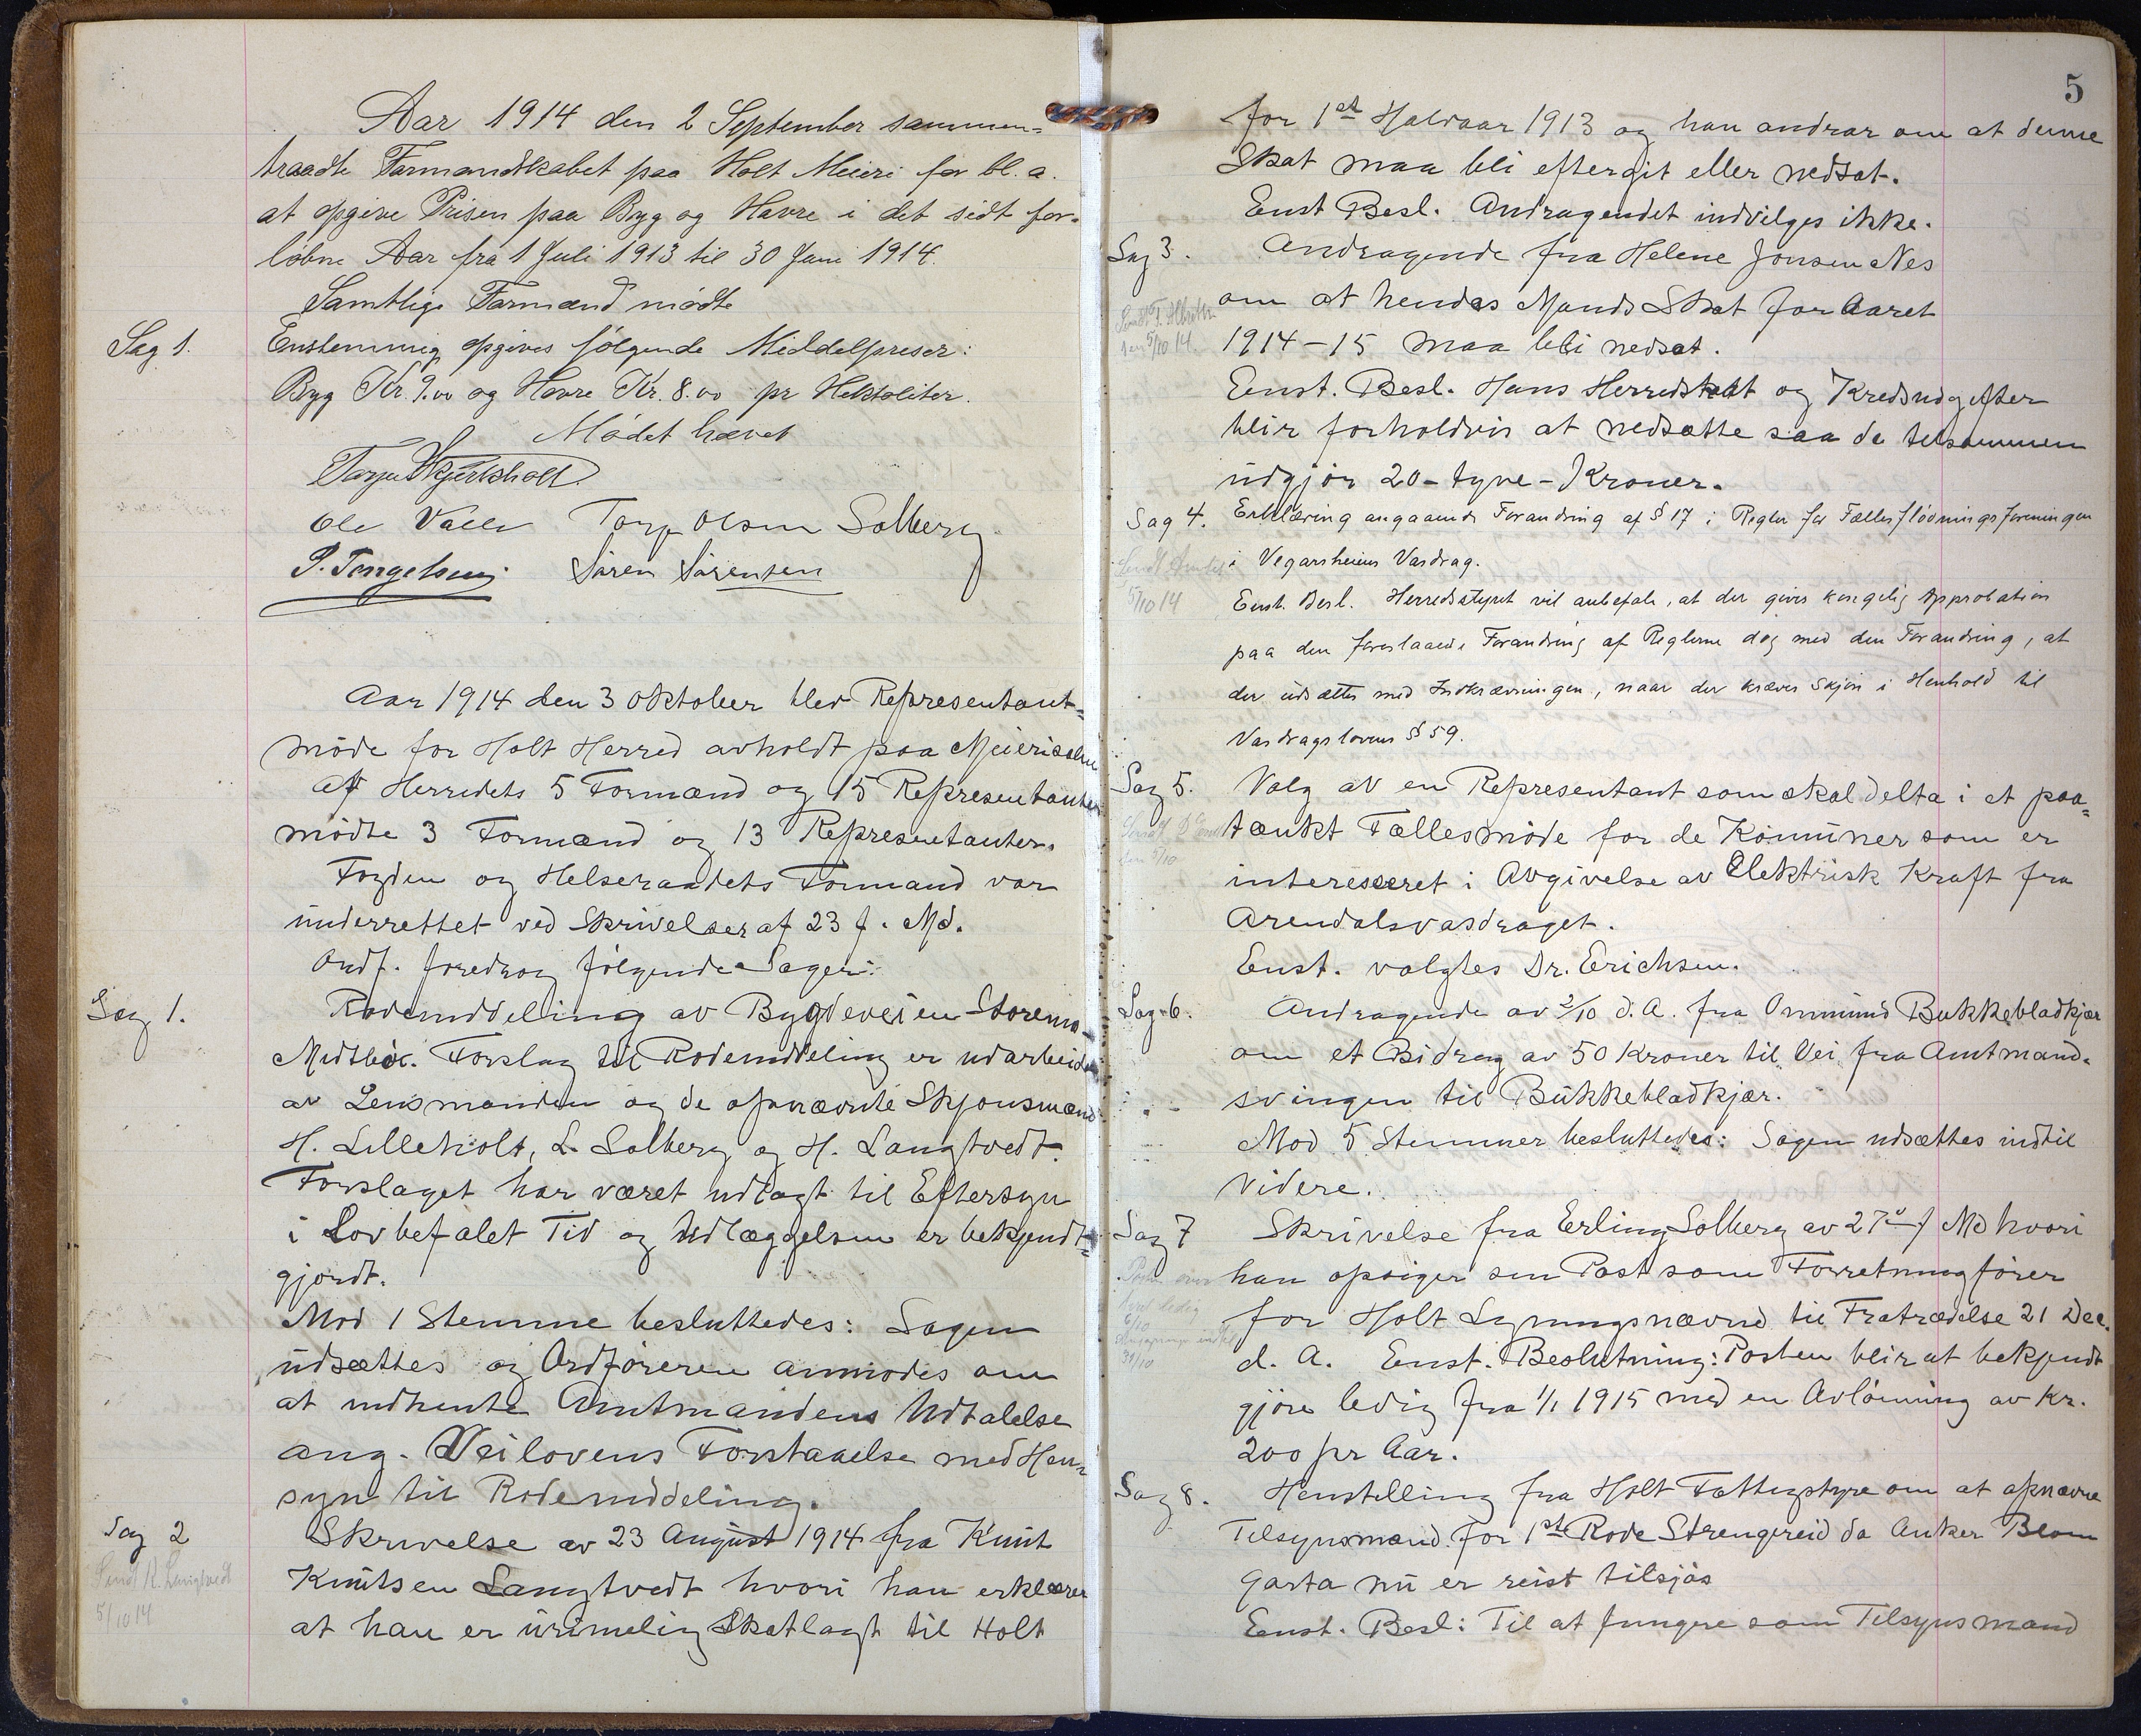 Aar 1914 den 2 September sammen=
traadte Formandskabet paa Holt Meieri for bl. a.
at opgive Prisen paa Byg og Havre i det sidt for-
løbne Aar fra 1 Juli 1913 til 30 Juni 1914.
Samtlige Formænd mødte
Sag 1.
Enstemmig opgives følgende Middelpriser:
Byg Kr. 9.00 og Havre Kr. 8.00 pr Hektoliter.
Mødet hævet
Ole Valle Torje Olsen Solberg
Søren Sørensen
Aar 1914 den 3 Oktober blev Representant=
møde for Holt Herred avholdt paa Meierisalen
Af Herredets 5 Formænd og 15 Representanter
mødte 3 Formænd og 13 Representanter.
Fogden og Helseraadets Formand var
underrettet ved Skrivelser af 23 f. Md.
Ordf. foredrog følgende Sager:
Sag 1.
Rodeinddeling av Bygdeveien Storemo-
Midtbøe. Forslag til Rodeinddeling er udarbeidet
av Lensmanden og de opnævnte Skjønsmænd
H. Lilleholt, L. Solberg og H. Langtvedt.
Forslaget har været udlagt til Eftersyn
i Lovbefalet Tid og Udlæggelsen er bekjendt=
gjordt.
Mod 1 Stemme besluttedes: Sagen
udsættes og Ordføreren anmodes om
at indhente Amtmandens Udtalelse
ang. Veilovens Forstaaelse med Hen=
syn til Rodeinddeling.
Sag 2
Sendt K. Langtvedt
5/10 14
Skrivelse av 23 August 1914 fra Knut
Knutsen Langtvedt hvori han erklærer
at han er urimelig Skatlagt til Holt
5
for 1st Halvaar 1913 og han andrar om at denne
Skat maa bli eftergit eller nedsat.
Enst Besl. Andragendet indvilges ikke.
Sag 3.
Andragende fra Helene Jonsen Nes
om at hendes Mands Skat for Aaret
1914-15 maa bli nedsat.
den 5/10 14.
Eenst. Besl. Hans Herredskat og Kredsudgifter
blir forholdvis at nedsætte saa de tilsammen
udgjør 20-tyve-Kroner.
Sag 4.
Erklæring angaaende Forandring af § 17 i Regler for Fællesflødningsforeningen
i Vegarsheiens Vasdrag.
Sendt Amtet
5/10 14
Eenst. Besl. Herredsstyret vil anbefale, at der gives kongelig Approbation
paa den foreslaaede Forandring af Reglerne dog med den Forandring, at
der udsættes med Indkrævningen, naar der kræves Skjøn i Henhold til
Vasdragslovens § 59.
Sag 5.
Valg av en Representant som skal delta i et paa=
tænkt Fællesmøde for de Komuner som er
interesseret i Avgivelse av Elektrisk Kraft fra
Arendalsvasdraget.
den 5/10
Enst. valgtes Dr. Erichsen.
Sag 6.
Andragende av 2/10 d. A. fra Ommund Bukkebladkjær
om et Bidrag av 50 Kroner til Vei fra Amtmand-
svingen til Bukkebladkjær.
Mod 5 Stemmer besluttedes: Sagen udsættes indtil
videre.
Sag 7
Skrivelse fra Erling Solberg av 27de f Md hvori
han opsiger sin Post som Forretningfører
for Holt Ligningsnævnd til Fratrædelse 21 Dec.
d. A. Enst. Beslutning: Posten blir at bekjendt
gjøre ledig fra 1/1 1915 med en Avlønning av Kr.
200 pr Aar.
6/10
31/10
Sag 8.
Henstilling fra Holt Fattigstyre om at opnævne
Tilsynsmand for 1ste Rode Strengereid da Anker Blom
Garta nu er reist tilsjøs
Eenst. Besl: Til at fungere som Tilsynsmand